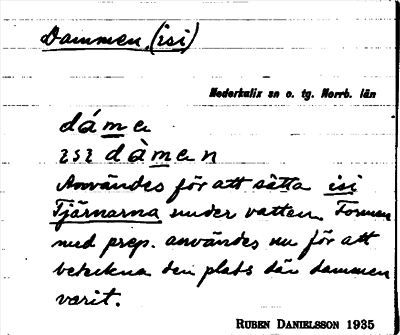 Dammen (isi)
Nederkalix sn o. tg. Norrb. län
dáme
ısı dàmen
Användes för att sätta isi
Tjärnarna under vatten. Formen
med prep. användes nu för att
beteckna den plats där dammen
varit.
RUBEN DANIELSSON 1935